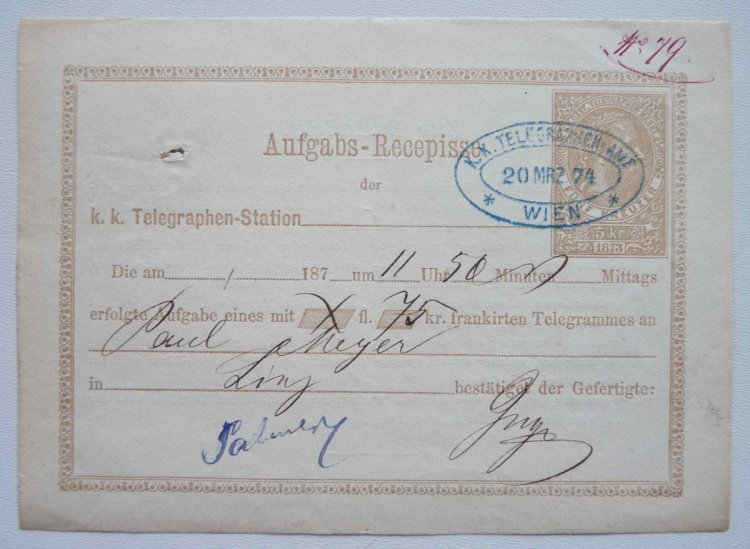 No 79.
Aufgabs-Recepisse
K. K. TELEGRAPHEN-AMT
20 MRZ. 74
* WIEN *
5 kr.
1873
der
k. k. Telegraphen-Station
Die am / 187 um 11 Uhr 50 Minuten Mittags
erfolgte Aufgabe eines mit X fl. 75 kr. frankirten Telegrammes an
Paul Meyer
in Linz bestätiget der Gefertigte: